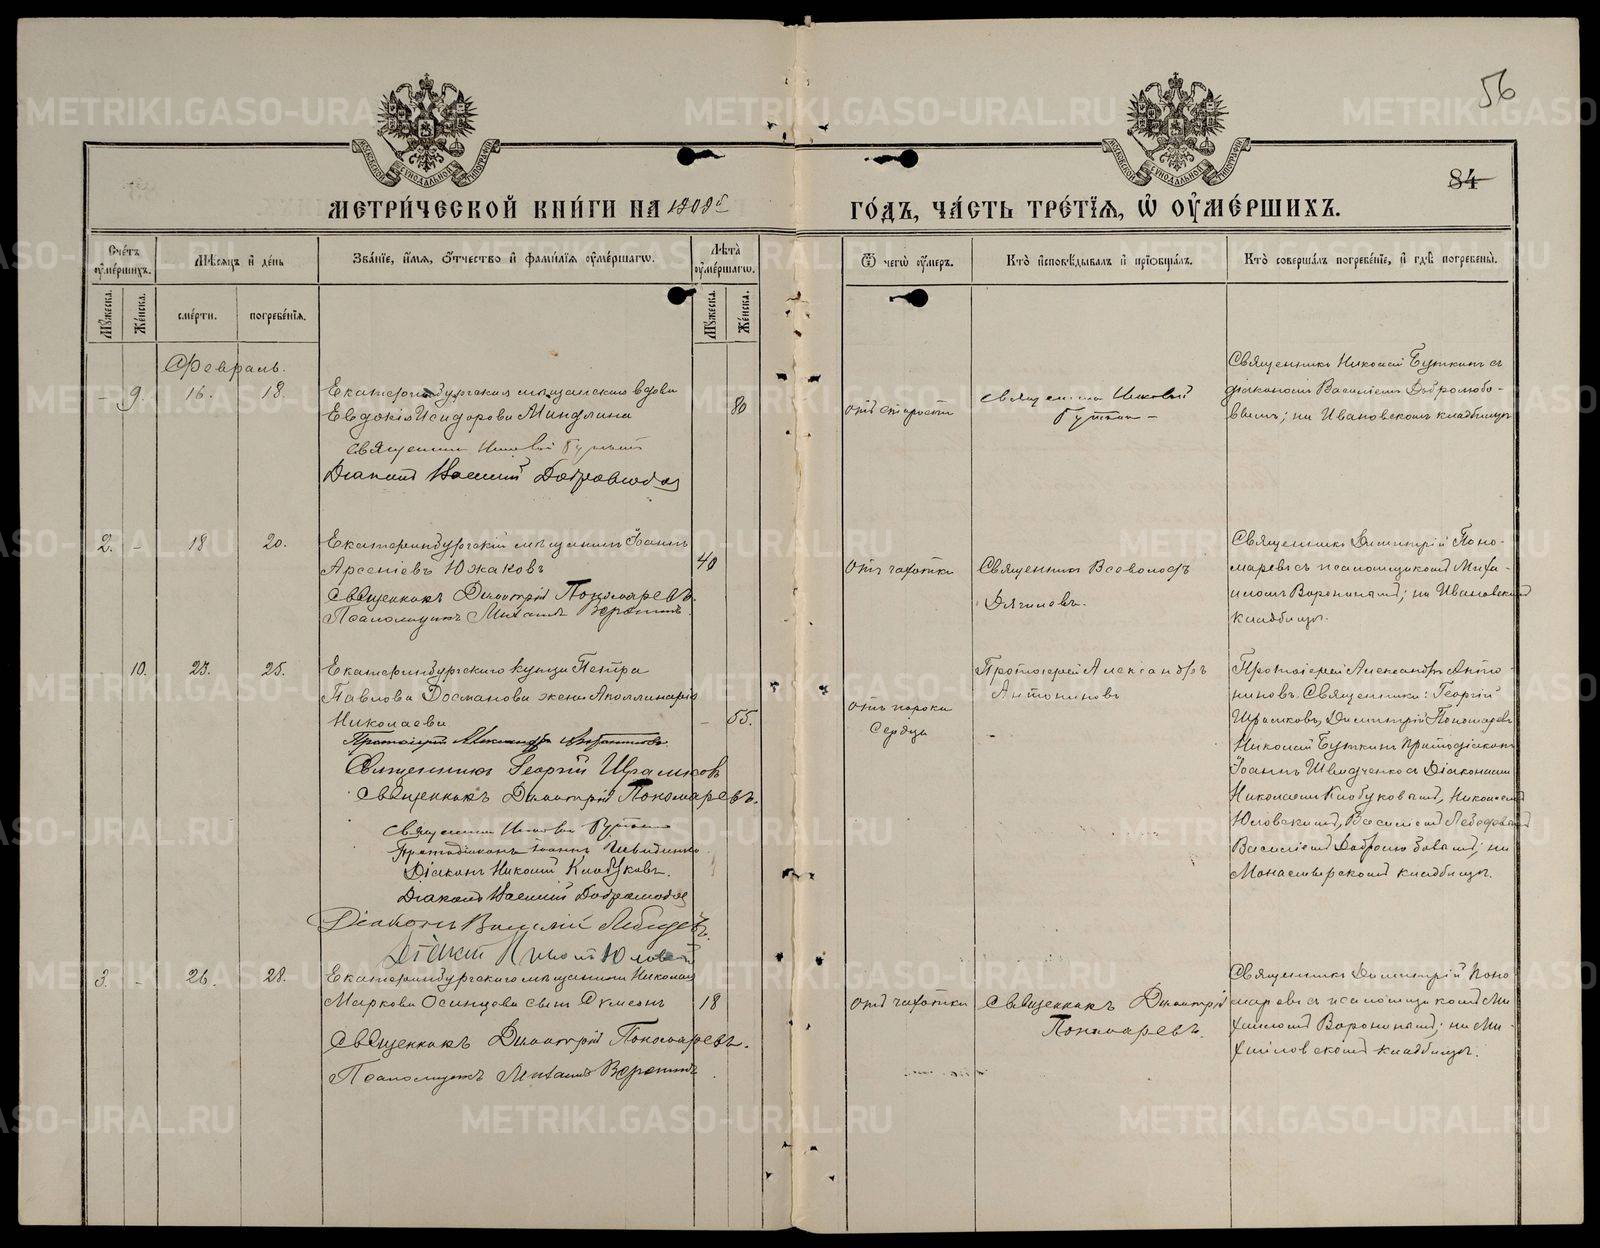 56
84
МЕТРИ́ЧЕСКОЙ КНИ́ГИ НА 1908й
ГО́ДЪ, ЧА́СТЬ ТРЕ́ТІѦ, Ѿ ОУМЕ́РШИХЪ.
Сче́тъ оумершихъ.
Мѣсяцъ и де́нь
Зва́ніе, и́мя, о́тчество и фами́лія оуме́ршагω.
Лѣта̀ оуме́ршагω.
Мꙋжеска.
Же́нска.
сме́рти.
погребе́нія.
Мꙋжеска.
Же́нска.
Ѿ чегѡ̀ оу́меръ.
Кто̀ исповѣ́дывалъ и пріобща́лъ.
Кто̀ соверша́лъ погребе́ніе, и гдѣ̀ погребены̀.
Февраль.
- 9. 16. 18.
Екатеринбургская мѣщанская вдова
Евдокія Исидорова Миндлина
80
Священникъ Николай Буткинъ
Діаконъ Василій Добролюбовъ
отъ старости
Священникъ Николай
Буткинъ
Священникъ Николай Буткинъ съ
діакономъ Василіемъ Добролюбо-
вымъ; на Ивановскомъ кладбищѣ
2. - 18 20.
Екатеринбургскій мѣщанинъ Іоаннъ
Арсеніевъ Южаковъ
40
Священникъ Димитрій Пономаревъ.
Псаломщикъ Михаилъ Воронинъ.
отъ чахотки
Священникъ Всеволодъ
Дягилевъ.
Священникъ Димитрій Поно-
маревъ съ псаломщикомъ Миха-
иломъ Воронинымъ; на Ивановскомъ
кладбищѣ.
- 10. 23. 25.
Екатеринбургскаго купца Петра
Павлова Досманова жена Аполлинарія
Николаева
- 55.
Протоіерей Александръ Антониновъ.
Священникъ Георгій Шрамковъ
Священникъ Димитрій Пономаревъ.
Священникъ Николай Буткинъ
Протодіаконъ Іоаннъ Швидченко
Діаконъ Николай Клобуковъ.
Діаконъ Василій Добролюбовъ
Діаконъ Василій Лебедевъ.
Діаконъ Николай Юловскій
отъ порока
сердца
Протоіерей Александръ
Антониновъ
Протоіерей Александръ Анто-
ниновъ. Священники: Георгій
Шрамковъ, Димитрій Пономаревъ
Николай Буткинъ протодіаконъ
Іоаннъ Швидченко съ Діаконами
Николаемъ Клобуковымъ, Николаемъ
Юловскимъ, Василіемъ Лебедевымъ
Василіемъ Добролюбовымъ; на
Монастырскомъ кладбищѣ.
3. - 26. 28.
Екатеринбургскаго мѣщанина Николая
Маркова Осинцова сынъ
18
Священникъ Димитрій Пономаревъ.
Псаломщикъ Михаилъ Воронинъ
отъ чахотки
Священникъ Димитрій
Пономаревъ.
Священникъ Димитрій Поно-
маревъ съ псаломщикомъ Ми-
хаиломъ Воронинымъ; на Ми-
хайловскомъ кладбищѣ.
METRIKI.GASO-URAL.RU